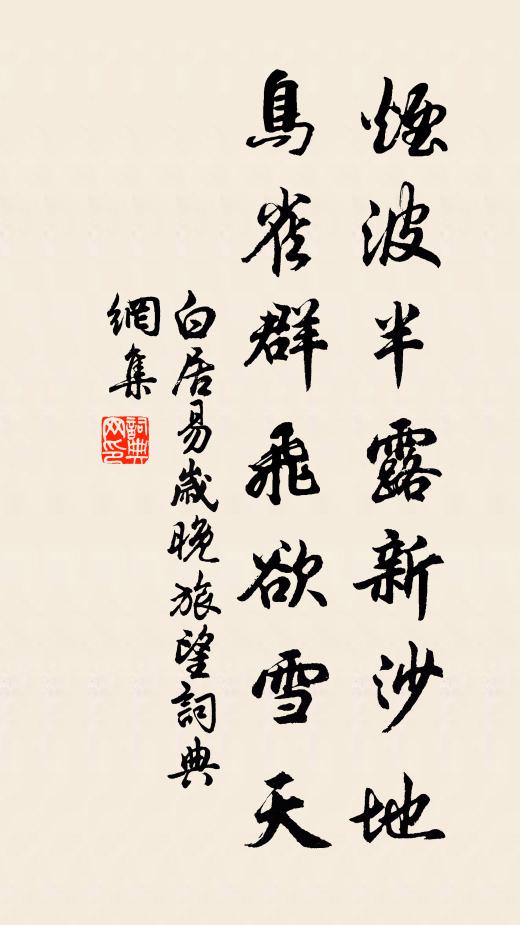 煙波半露新沙地
鳥雀群飛欲雪天
白居易歲晚旅望詞典
網集
詞典
网印